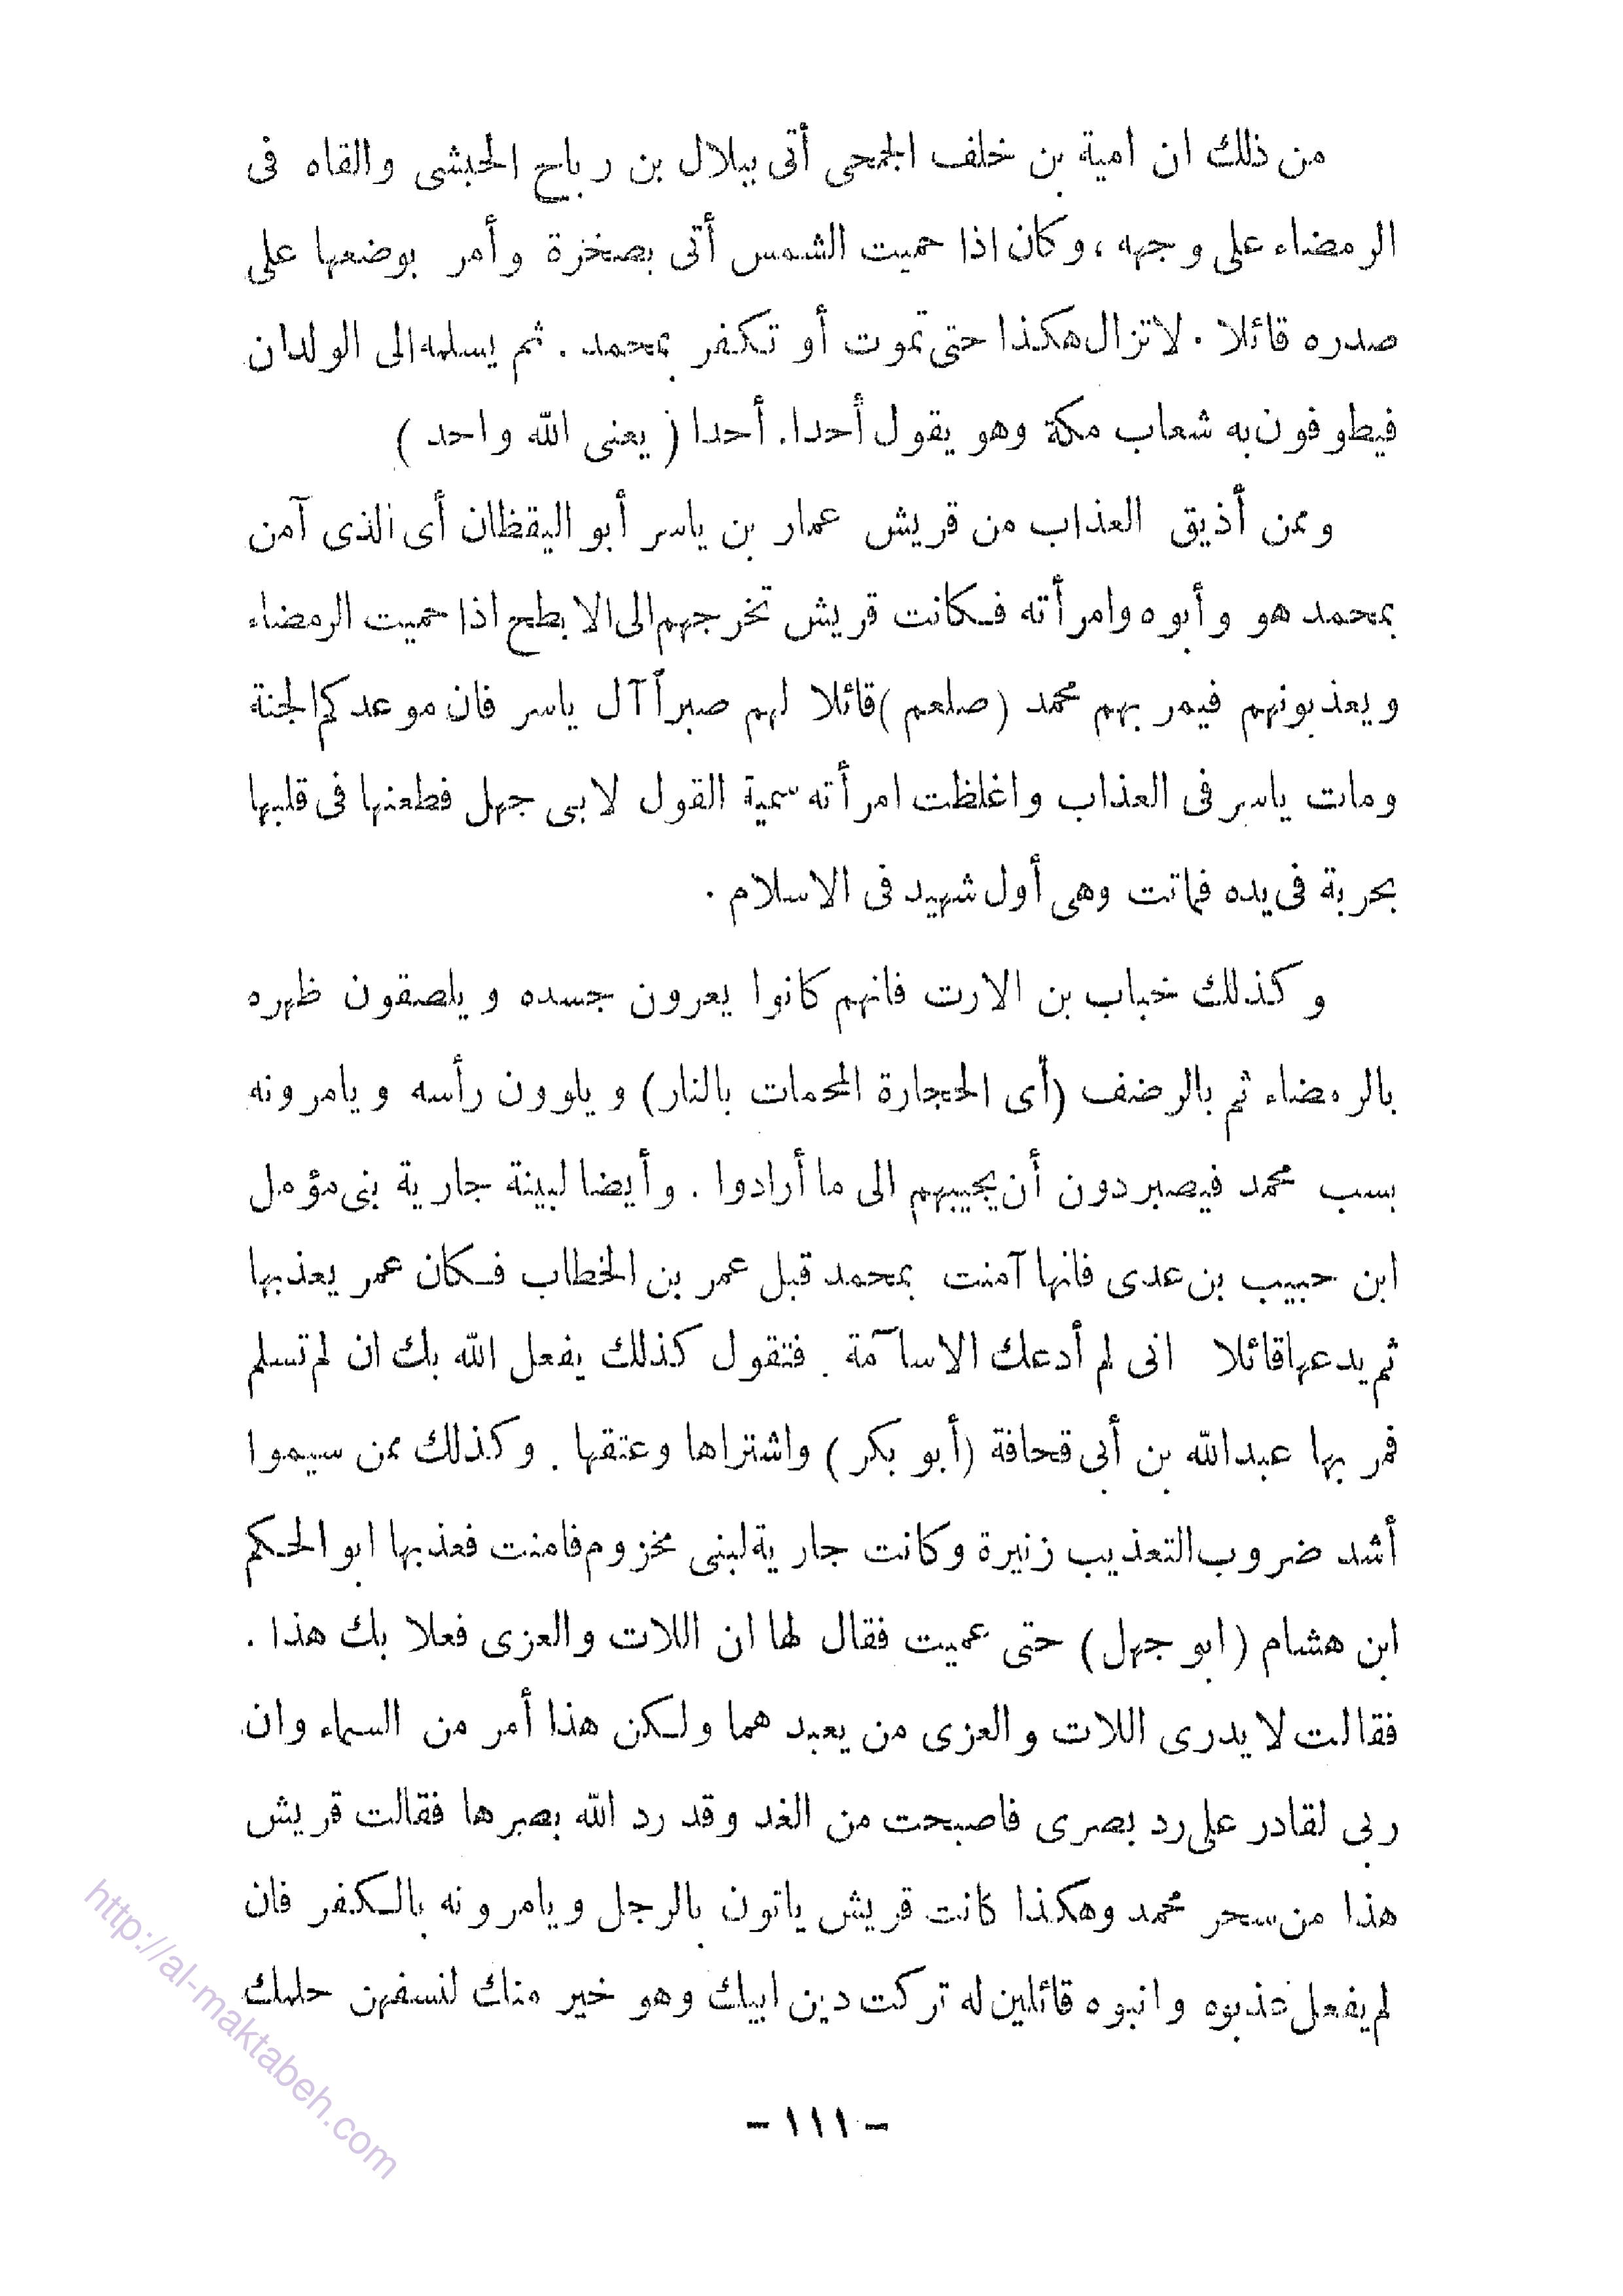 من ذلك ان امية بن خلف الجمحى أتى ببلال بن رباح الحبشى والقاه فى
الرمضاء على وجهه ، وكان اذا حميت الشمس أتى بصخرة وأمر بوضعها على
صدره قائلا . لا تزال هكذا حتى تموت أو تكفر بمحمد . ثم يسلمه الى الولدان
فيطوفون به شعاب مكة وهو يقول أحدا . أحدا ( يعنى الله واحد )
وممن أذيق العذاب من قريش عمار بن ياسر أبو اليقظان أى الذى آمن
بمحمد هو وأبوه وامرأته فكانت قريش تخرجهم الى الابطح اذا حميت الرمضاء
ويعذبونهم فيمر بهم محمد ( صلعم ) قائلا لهم صبراً آل ياسر فان موعدكم الجنة
ومات ياسر فى العذاب واغلظت امرأته سمية القول لابى جهل فطعنها فى قلبها
بحربة فى يده فماتت وهى أول شهيد فى الاسلام .
وكذلك خباب بن الارت فانهم كانوا يعرون جسده ويلصقون ظهره
بالرمضاء ثم بالرضف ( أى الحجارة المحمات بالنار ) ويلوون رأسه ويامرونه
بسب محمد فيصبر دون أن يجيبهم الى ما أرادوا . وأيضا لبينة جارية بنى مؤمل
ابن حبيب بن عدى فانها آمنت بمحمد قبل عمر بن الخطاب فكان عمر يعذبها
ثم يدعها قائلا انى لم أدعك الا سآمة . فتقول كذلك يفعل الله بك ان لم تسلم
فمر بها عبدالله بن أبى قحافة ( أبو بكر ) واشتراها وعتقها . وكذلك ممن سيموا
أشد ضروب التعذيب زنيرة وكانت جارية لبنى مخزوم فامنت فعذبها ابو الحكم
ابن هشام ( ابو جهل ) حتى عميت فقال لها ان اللات والعزى فعلا بك هذا .
فقالت لا يدرى اللات والعزى من يعبدهما ولكن هذا أمر من السماء وان
ربى لقادر على رد بصرى فاصبحت من الغد وقد رد الله بصرها فقالت قريش
هذا من سحر محمد وهكذا كانت قريش ياتون بالرجل ويامرونه بالكفر فان
لم يفعل عذبوه وانبوه قائلين له تركت دين ابيك وهو خير منك لنسفهن حلمك
- ١١١ -
http://al-maktabeh.com